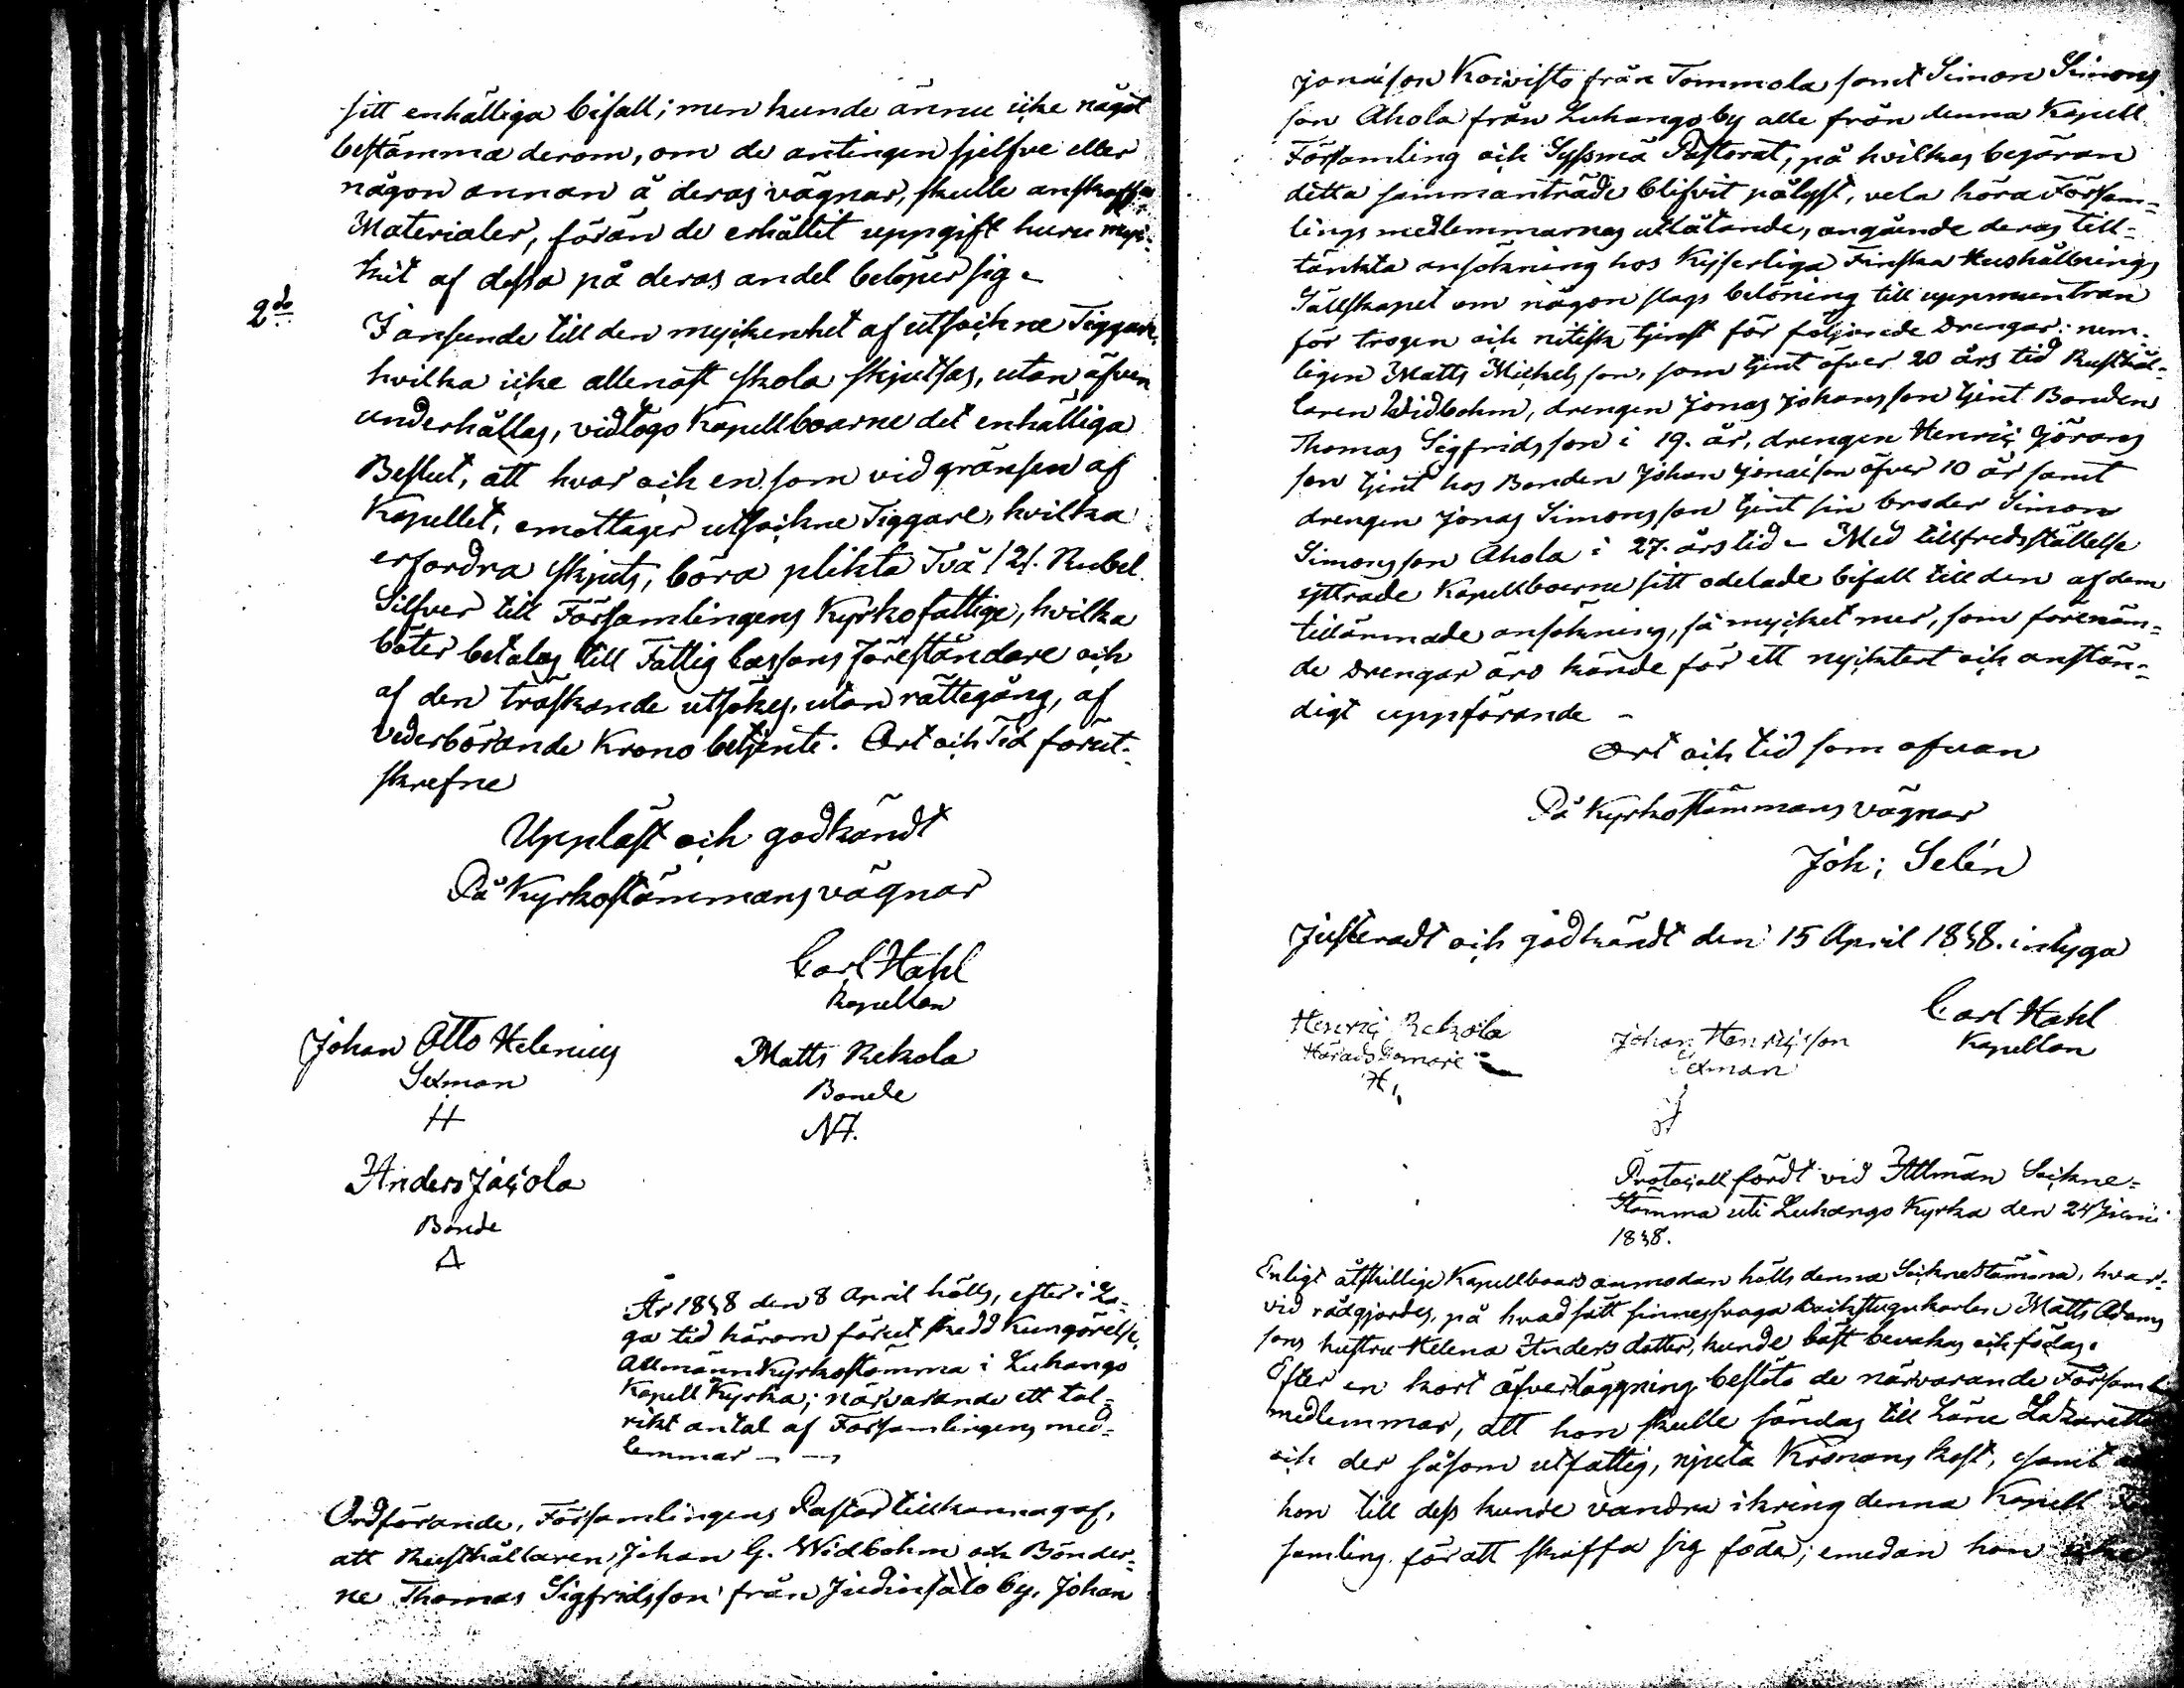 sitt enhälliga bifall; men kunde ännu icke något
bestämma derom, om de antingen sjelfve eller
någon annan å deras vägnar, skulle anskaffa
Materialer, förän de erhållit uppgift huru myc-
kit af dessa på deras andel belöper sig.
2do
I anseende till den myckenhet af utsockne Tiggare,
hvilka icke allenast skola skjutsas, utan äfven
underhållas, vidtogo Kapellboarne det enhälliga
Beslut, att hvar och en som vid gränsen af
Kapellet, emottager utsockne Tiggare, hvilka
erfordra skjuts, böra plikta Två /2/. Rubel
Silfver till Församlingens Kyrkofattige, hvilka
böter betalas till Fattig Cassans föreståndare och
af den traskande utsökes, utan rättegång, af
vederbörande Krono betjente. Ort och Tid förut-
skrefne
Uppläst och godkändt
På Kyrkostämmans vägnar
Carl Hahl
Kapellan
Johan Otto Helenius
Sexman
H
Matts Rekola
Bonde
Anders Jacola
Bonde
A
År 1848 den 8 April hölls, efter i La-
ga tid härom förut skedd Kungörelse,
Allmänn Kyrkostämma i Luhango
Kapell Kyrka; närvarande ett tal-
rikt antal af Församlingens med-
lemmar
Ordförande, Församlingens Pastor tillkännagaf,
att Rusthållaren Johan G. Widbohm och Bönder-
ne Thomas Sigfridsson från Judinsalo by, Johan
Jonaïson Koivisto från Tommola samt Simon Simons
son Ahola från Luhango by alle från denna Kapell
Församling och Sysmä Pastorat, på hvilkas begäran
detta sammanträde blifvit pålyst, vela höra Försam-
lings medlemmarnas utlåtande, angående deras till-
tänkta ansökning hos Kejserliga Finska Hushållnings
Sällskapet om någon slags belöning till uppmuntran
för trogen och nitisk tjenst för följande Drengar: nem-
ligen Matts Michelsson, som tjent öfver 20 års tid Rusthål-
laren Widbohm, drengen Jonas Johansson tjent Bonden
Thomas Sigfridsson i 19. år, drengen Henric Görans
son tjent hos Bonden Johan Jonaïson öfver 10 år samt
drengen Jonas Simonsson tjent sin broder Simon
Simonsson Ahola i 27. års tid - Med tillfredsställelse
yttrade Kapellboerne sitt odelade bifall till den af dem
tillämnade ansökning, så mycket mer, som förenäm-
de Drengar äro kände för ett nycktert och anstän-
digt uppförande -
Ort och tid som ofvan
På Kyrkostämmans vägnar
Joh: Selén
Justeradt och godkändt den 15 April 1848. intyga
Carl Hahl
Kapellan
Henric Rekola
Härads Domare
H
Johan Henricsson
Sexman
Protocoll fördt vid Allmän Sockne-
Stämma uti Luhango Kyrka den 24 Junii
1848.
Enligt åtskillige Kapellboars anmodan hölls denna Socknestämma, hvar-
vid rådgjordes, på hvad sätt sinnessvaga backstugukarlen Matts Adams
sons hustru Helena Anders dotter, kunde bäst bevakas och födas.
Efter en kort öfverläggning beslöto de närvarande Församl
medlemmar, att hon skulle sändas till Läne Lazarettet
och der såsom utfattig, njuta Kronans kost, samt
hon till dess kunde vandra ikring denna Kapell
samling för att skaffa sig föda; emedan hon icke